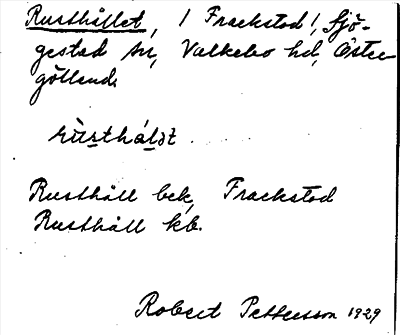 Rusthållet, / Frackstad /, Sjö-
gestad sn, Valkebo hd, Öster-
götland.
rùsthál̲ət
Rusthåll bek, Frackstad
Rusthåll kb.
Robert Pettersson 1929